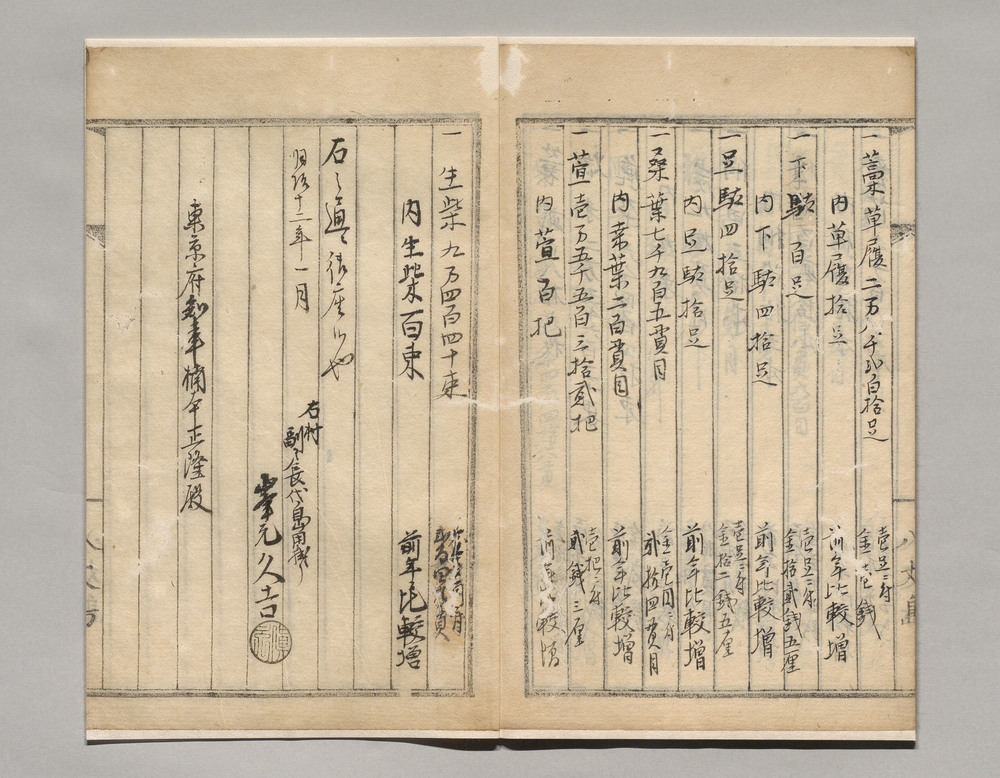 一藁草履二万八千弐百拾足
壱足ニ付
金壱銭
内草履拾足
前年比較増
一下駄百足
壱足ニ付
金拾弐銭五厘
内下駄四拾足
前年比較増
一足駄四拾足
壱足ニ付
金拾二銭五厘
内足駄拾足
前年比較増
一桑葉七千九百五貫目
金壱円ニ付
弐拾四貫目
内桑葉二百貫目
前年比較増
一萱壱万五千五百三拾弐把
壱把ニ付
弐銭三厘
内萱百把
前年比較増
一生柴九万四百四十束
内生柴百束
前年比較増
右之通
十二年一月
右村
副戸長代島田
久吉
東京府知事楠本正隆殿